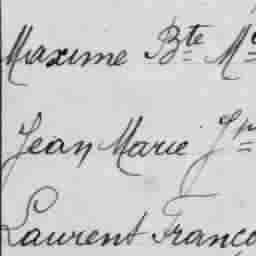 Maxime Bte
Jean Marie
Laurent Franço